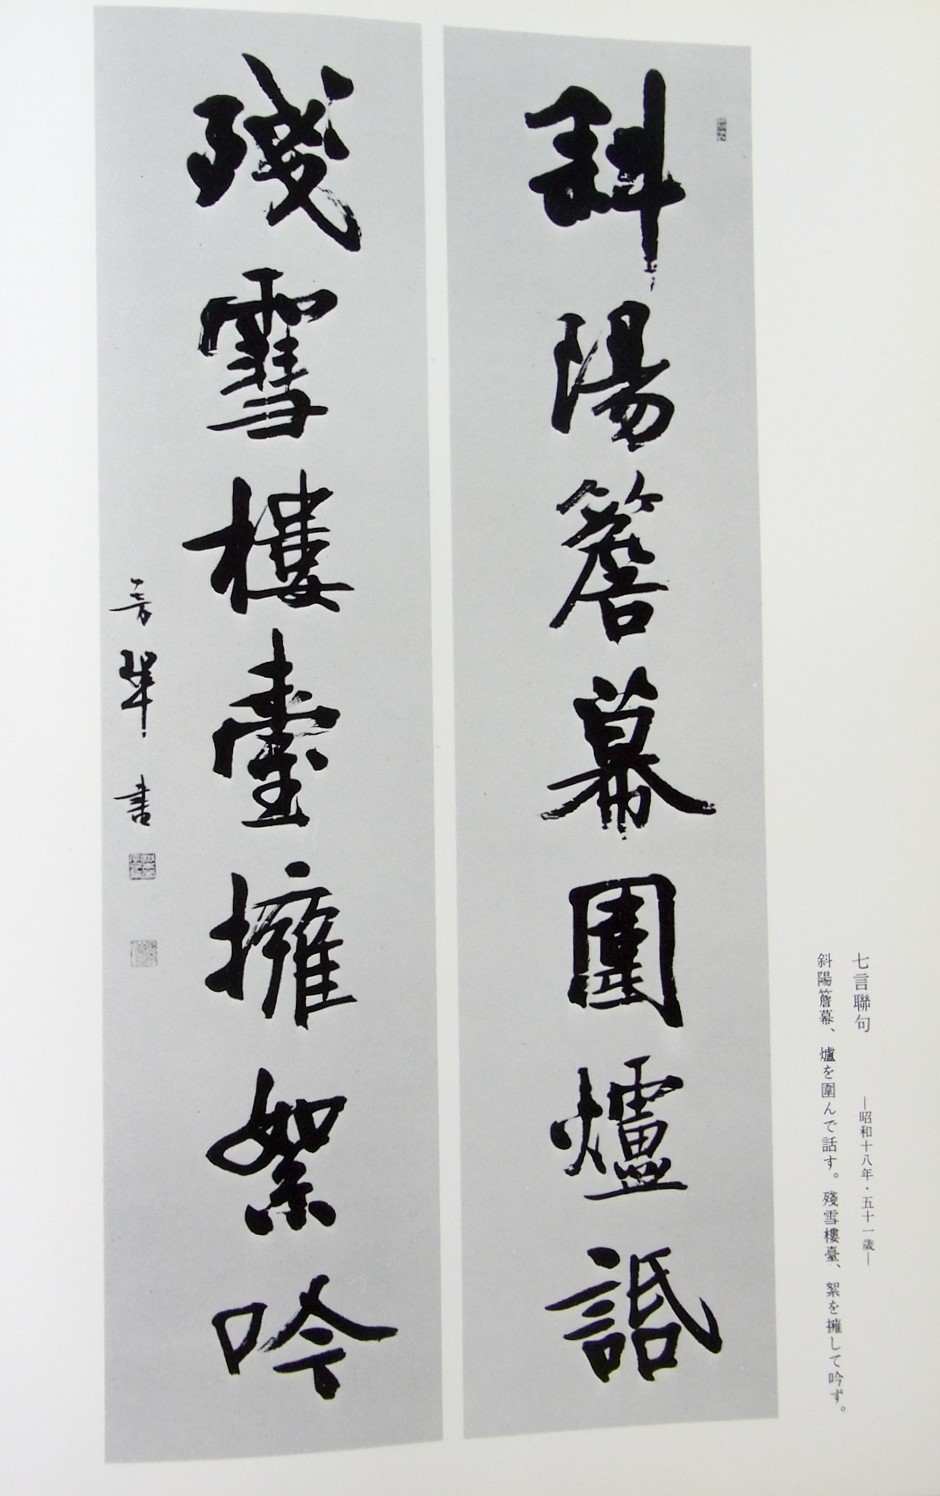 七言聯句 —昭和十八年・五十一歳—
斜陽簷幕、爐を圍んで話す。殘雪樓臺、絮を擁して吟ず。
斜陽簷幕圍爐話
殘雪樓臺擁絮吟
書